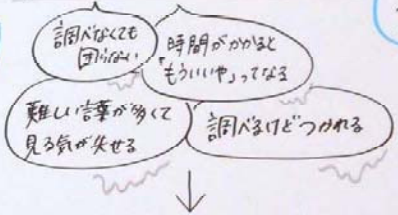 調べなくても
困らない
時間がかかると
「もういいや」ってなる
難しい言葉が多くて
見る気が失せる
調べるけどつかれる